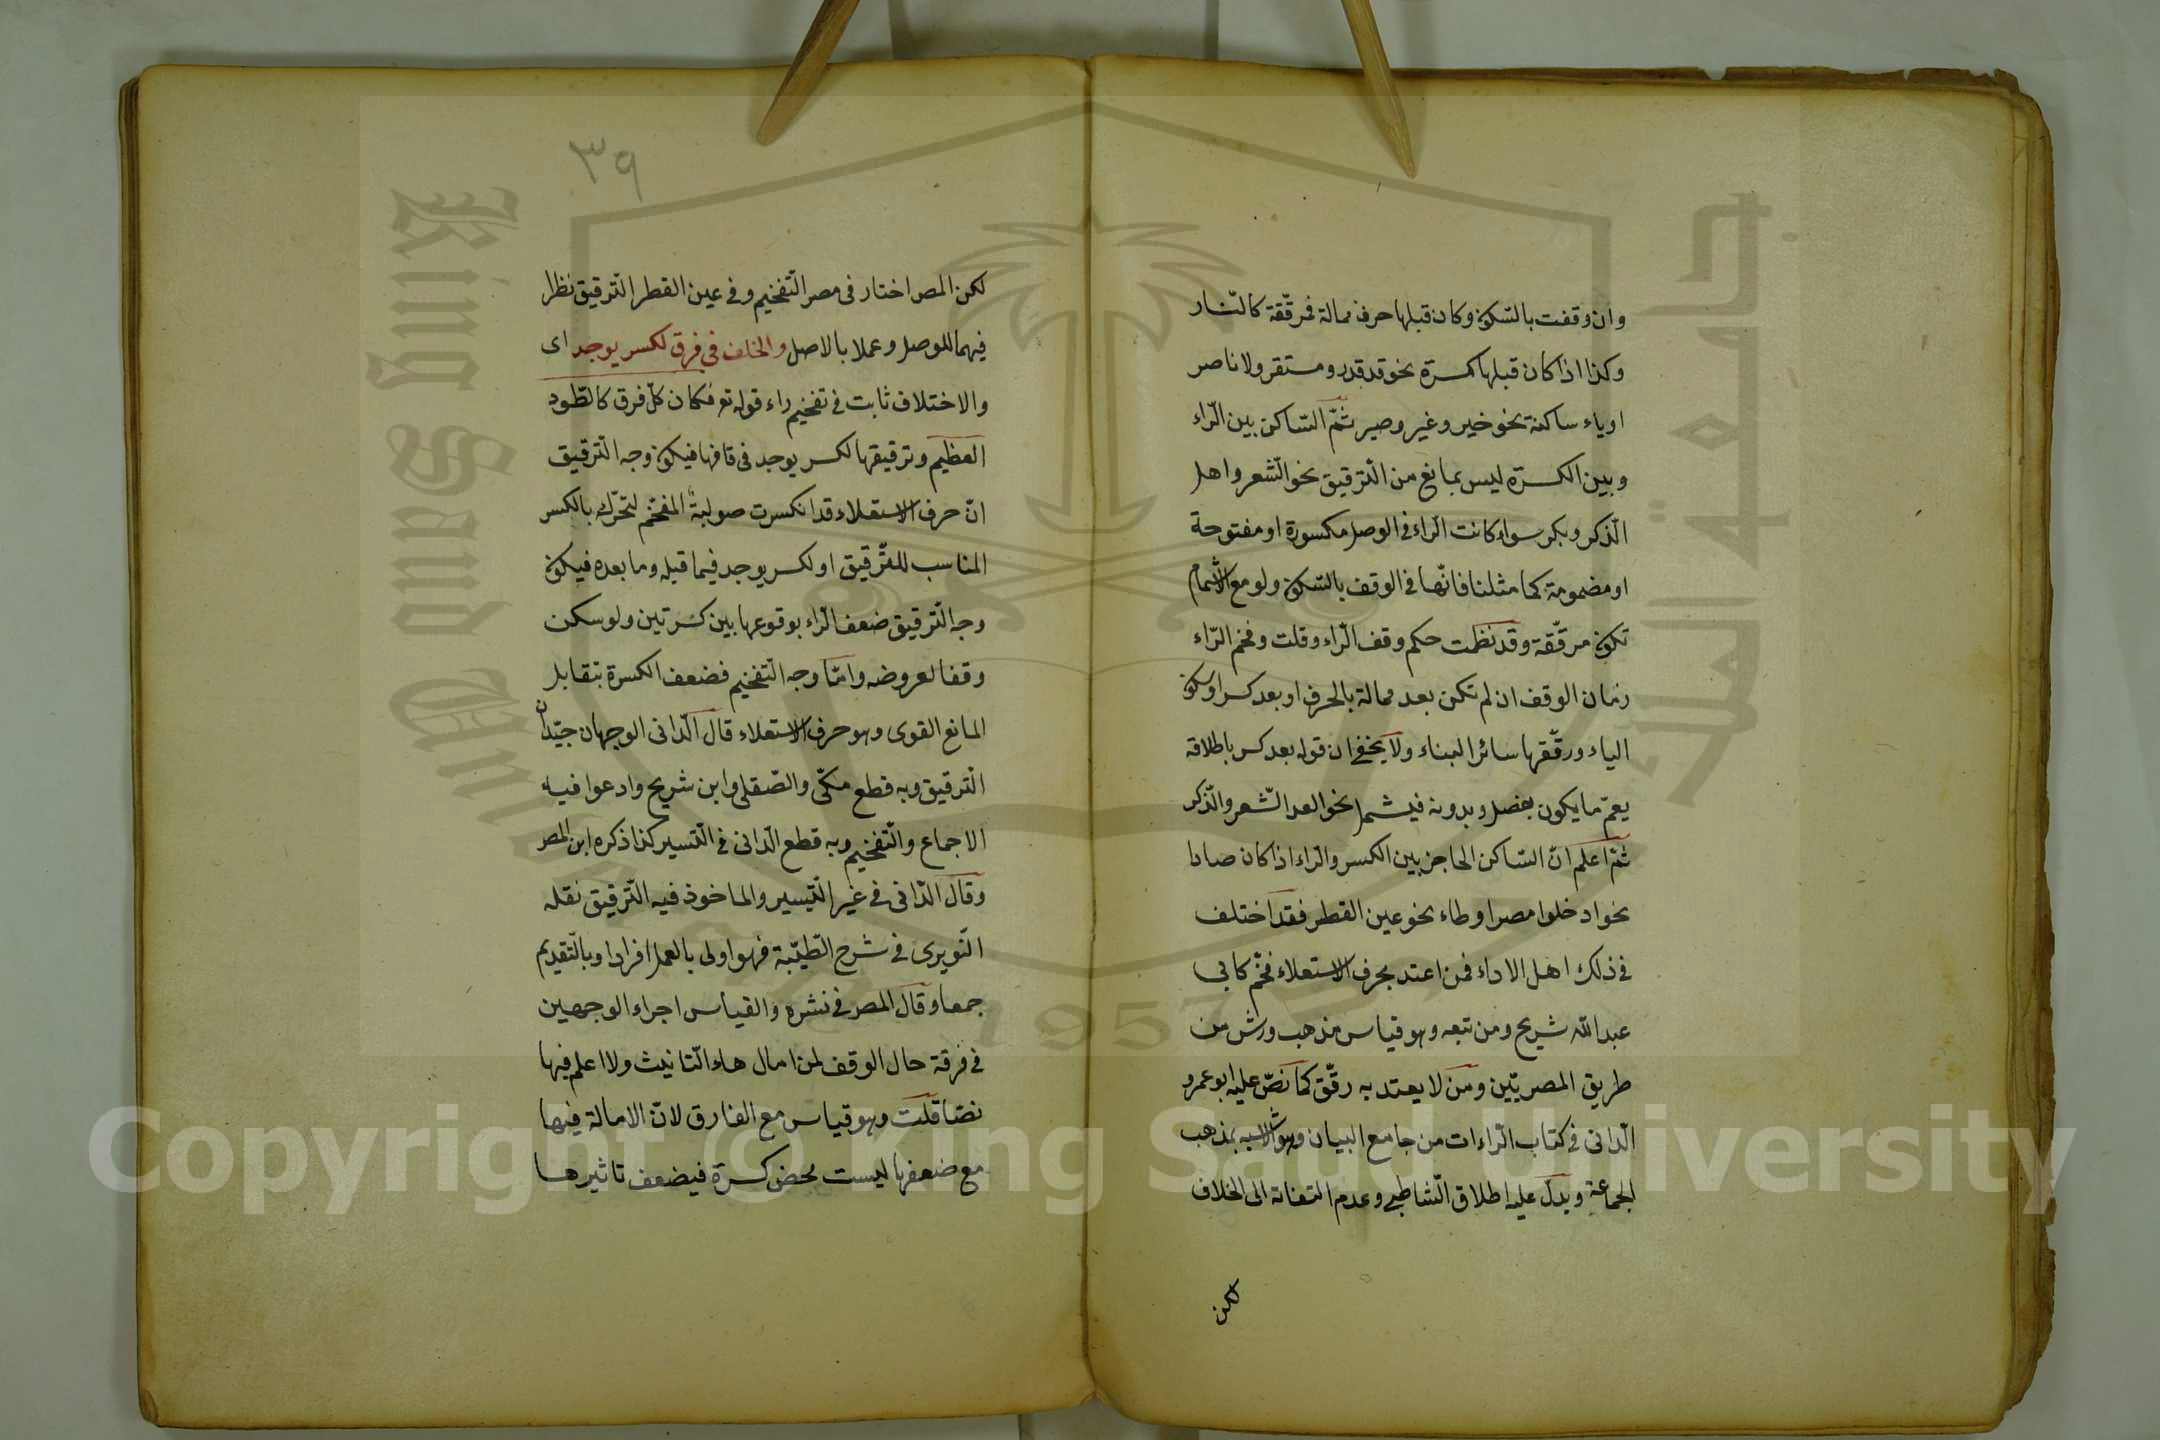 وان وقفت بالسّكون وكان قبلها حرف ممالة فمرقّقة كالنّار
وكذا اذا كان قبلها كسرة نحو قد قدر ومستقر ولا ناصر
او ياء ساكنة نحو خير وغير وصير ثمّ السّاكن بين الرّاء
وبين الكسرة ليس بمانع من التّرقيق نحو الشّعر واهل
الذّكر وبكر سواء كانت الرّاء فى الوصل مكسورة او مفتوحة
او مضمومة كما مثلنا فانّها فى الوقف بالسّكون ولو مع الاشمام
تكون مرقّقة وقد نظمت حكم وقف الرّاء وقلت وفخم الرّاء
زمان الوقف ان لم تكن بعد ممالة بالحرف او بعد كسر او سكون
الياء ورقّقها سائر البناء ولا يخفى ان قوله بعد كسر باطلاقه
يعمّ ما يكون بفصل وبدونه فيشمل نحو الشّعر والذّكر
ثمّ اعلم انّ السّاكن الحاجز بين الكسر والرّاء اذا كان صادا
نحو ادخلوا مصر او طاء نحو عين القطر فقد اختلف
فى ذلك اهل الاداء فمن اعتد بحرف الاستعلاء فخّم كابى
عبد الله شريح ومن تبعه وهو قياس مذهب ورش من
طريق المصريّين ومن لا يعتد به رقّق كما نصّ عليه ابو عمرو
الدّانى فى كتاب الرّاءات من جامع البيان وهو الاشبه بمذهب
الجماعة ويدلّ عليه اطلاق الشاطبى وعدم التفاته الى الخلاف
لكن
٣٩
لكن المص اختار فى مصر التّفخيم وفى عين القطر التّرقيق نظرا
فيهما للوصل وعملا بالاصل والخلف فى فرق لكسر يوجد اى
والاختلاف ثابت فى تفخيم راء قوله تع فكان كلّ فرق كالطّود
العظيم وترقيقها لكسر يوجد فى قافها فيكون وجه التّرقيق
انّ حرف الاستعلاء قد انكسرت صولته المفخّم لتحرّكه بالكسر
المناسب للتّرقيق او لكسر يوجد فيما قبله وما بعده فيكون
وجه التّرقيق ضعف الرّاء بوقوعها بين كسرتين ولو سكن
وقفا لعروضه وامّا وجه التّفخيم فضعف الكسرة بتقابل
المانع القوى وهو حرف الاستعلاء قال الدّانى الوجهان جيّدان
التّرقيق وبه قطع مكّى والصّقلى وابن شريح وادعوا فيه
الاجماع والتّفخيم وبه قطع الدّانى فى التّيسير كذا ذكره ابن المص
وقال الدّانى فى غير التّيسير والماخوذ فيه التّرقيق نقله
النّويرى فى شرح الطّيّبة فهو اولى بالعمل افرادا وبالتّقديم
جمعا وقال المص فى نشره والقياس اجراء الوجهين
فى فرقة حال الوقف لمن امال هاء التّانيث ولا اعلم فيها
نصّا قلت وهو قياس مع الفارق لانّ الامالة فيها
مع ضعفها ليست محض كسرة فيضعف تاثيرها
King Saud University
جامعة الملك سعود
1957
Copyright © King Saud University